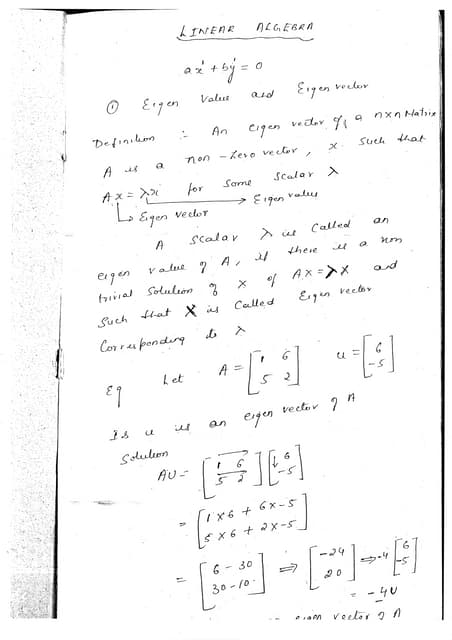 LINEAR ALGEBRA
ax¹ + by¹ = 0
① Eigen Value and Eigen vector
Definition :- An eigen vector of a nxn Matrix
A is a non-zero vector, x such that
Ax = λx for some scalar λ
→ Eigen value
↳ Eigen vector
A scalar λ is called an
eigen value of A, if there is a non
trivial solution of x of Ax = λx and
Such that X is called Eigen vector
Corresponding to λ
Eg Let A = [1 6 u = [6
5 2] -5]
Is u is an eigen vector of A
Solution
AU = [1 6 [6
5 2] -5]
= [1×6 + 6×-5
5×6 + 2×-5]
= [6 - 30 ⇒ [-24 ⇒ -4 [6
30-10] 20] -5]
= -4U
eigen vector of A